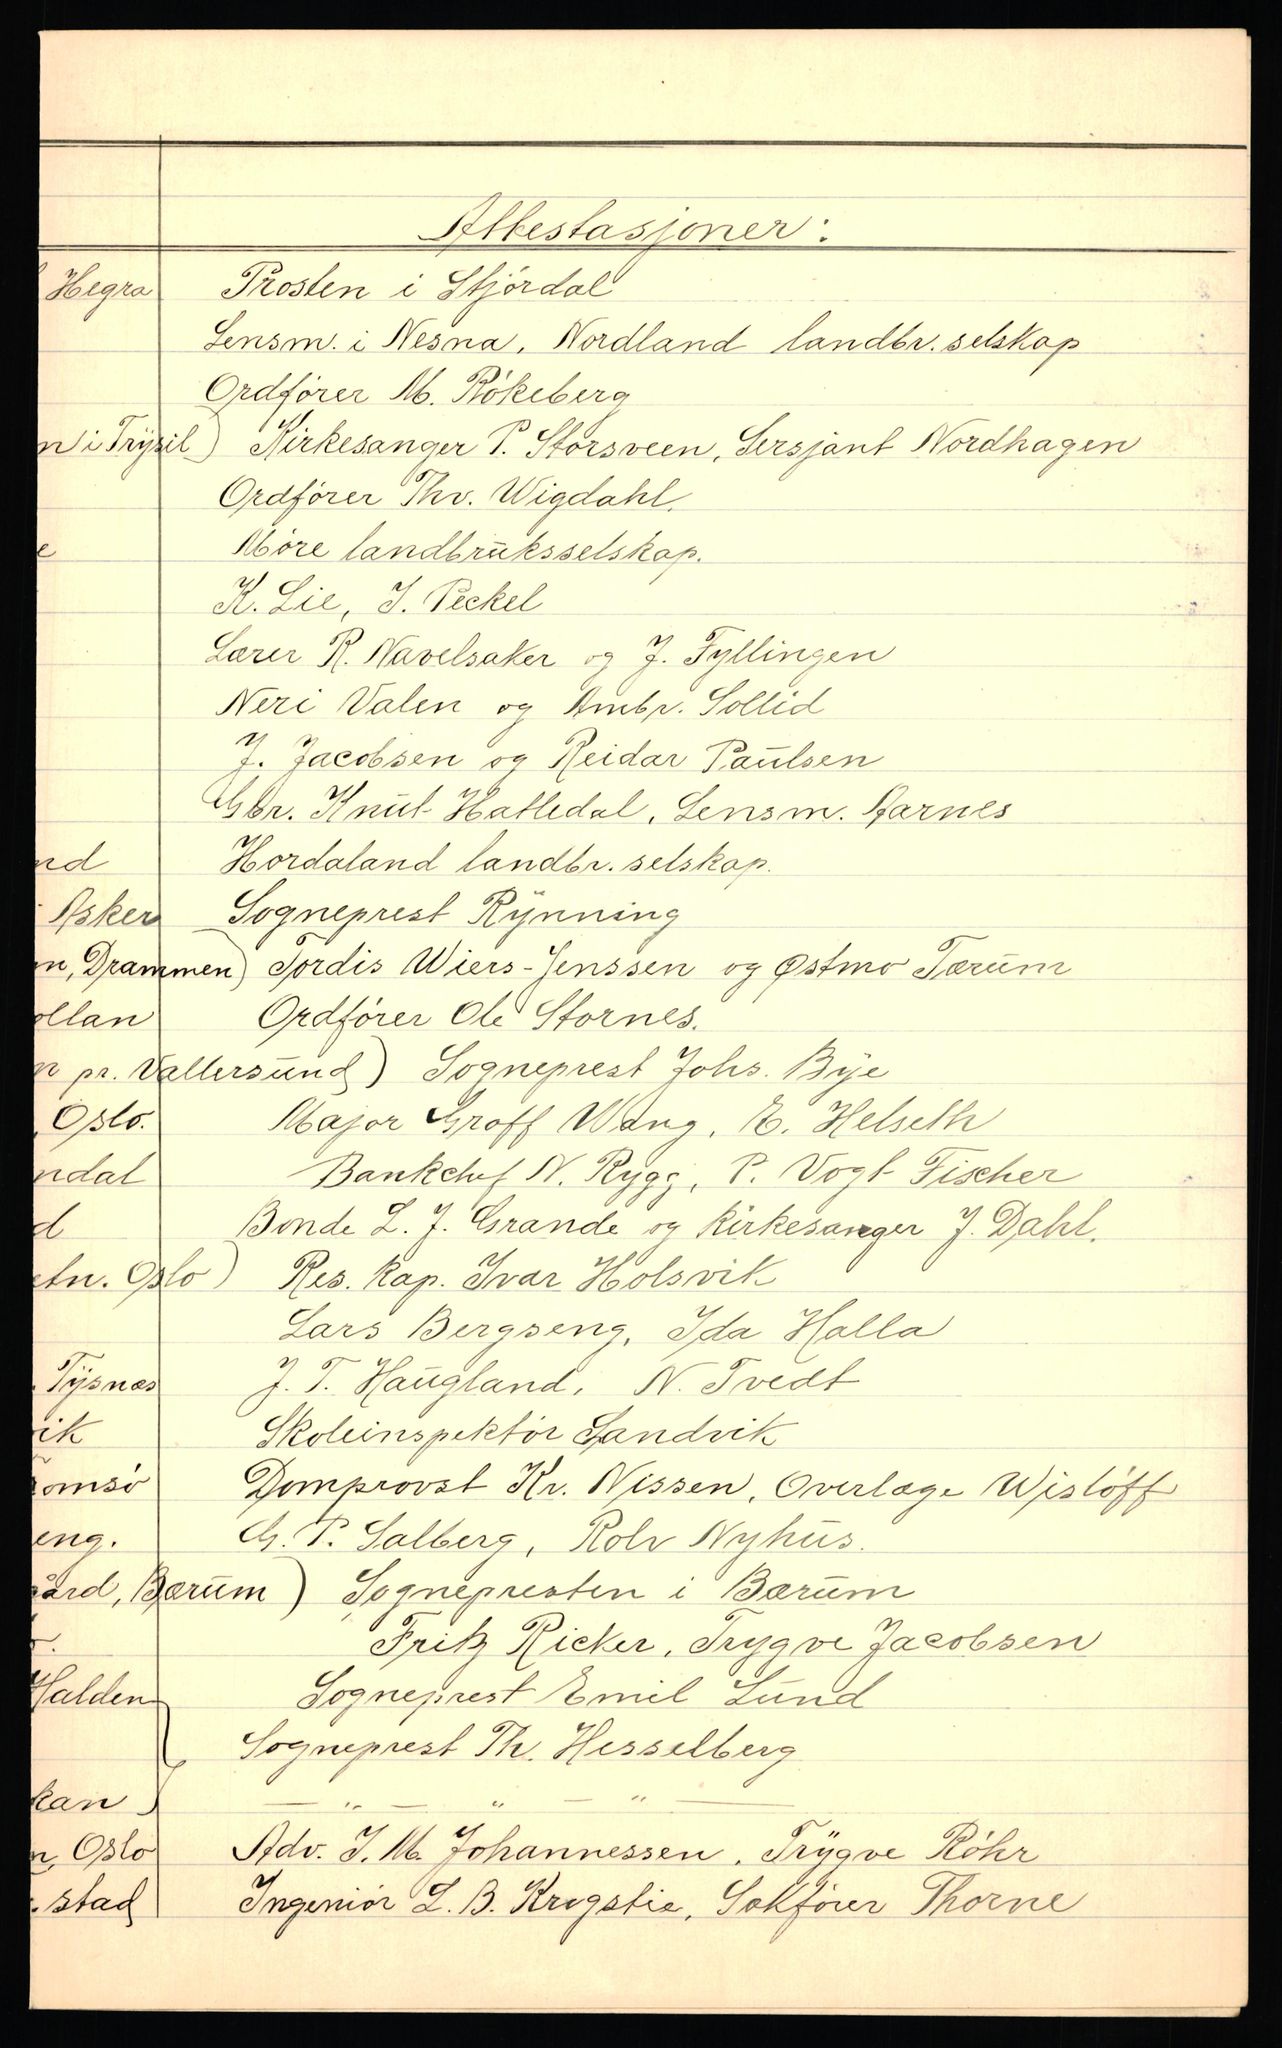 Attestasjoner:
Hegra Prosten i Stjördal
Lensm. i Nesna, Nordland landbr. selskap
Ordförer M. Rökeberg
n i Trysil) Kirkesanger P. Storsveen, Sersjant Nordhagen
Ordförer Thv. Wigdahl.
e Möre landbruksselskap.
K. Lie, J. Peckel
Lærer R. Navelsaker og J. Fyllingen
Neri Valen og Ambr. Sollid
J. Jacobsen og Reidar Paulsen
Gbr. Knut Hatledal, Lensm. Aarnes
nd Hordaland landbr. selskap.
Asker Sogneprest Rynning
n, Drammen) Tordis Wiers-Jenssen og Østmo Tærum
ollan Ordförer Ole Stornes.
n pr. Vallersund) Sogneprest Johs. Bye
, Oslo. Major Groff Wang, E. Helseth
ndal Bankchef N. Rygg, P. Vogt Fischer
d Bonde L. J. Grande og kirkesanger J. Dahl.
etn. Oslo) Res. kap. Ivar Holsvik
Lars Bergseng, Ida Halla
. Tysnæs J. T. Haugland, N. Tvedt
ik Skoleinspektör Sandvik
omsö Domprovst Kr. Nissen, Overlæge Wislöff
eng. G. P. Salberg, Rolv Nyhus.
gård, Bærum) Sognepresten i Bærum
Fritz Ricker, Trygve Jacobsen
Halden Sogneprest Emil Lund
Sogneprest Th. Hesselberg
kan) — " — " — " —
n, Oslo Adv. J. M. Johannessen, Trygve Röhr
. stad Ingeniör L. B. Krogstie, Sakförer Thorne